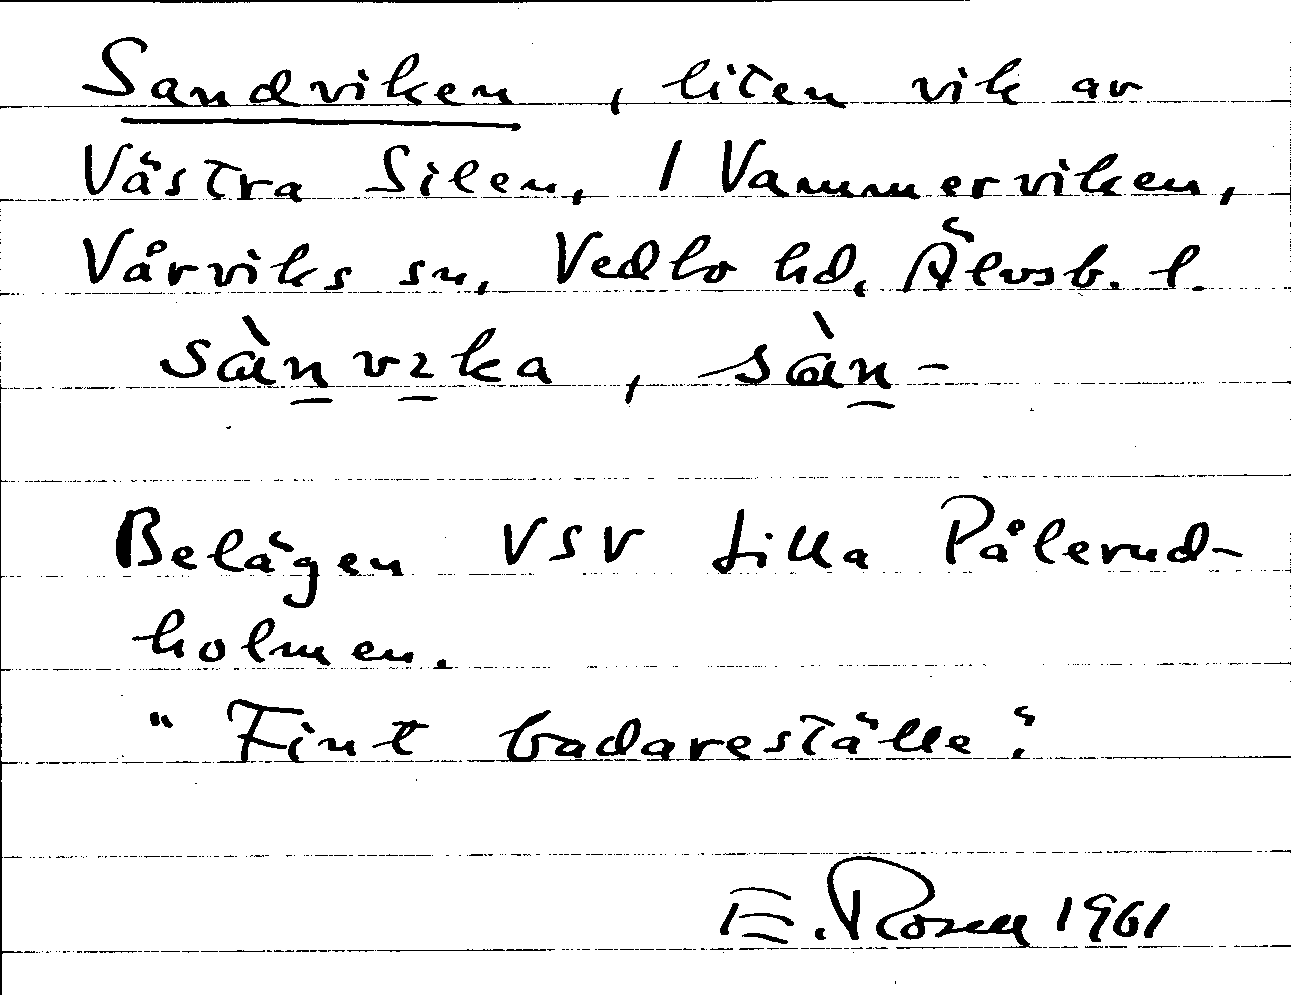 Sandviken, liten vik av
Västra Silen, / Vammerviken,
Vårviks sn, Vedbo hd, Älvsb. l.
sàn̲vɿ̲ka, sàn̲-
Belägen VSV Lilla Pålerud-
holmen.
"Fint badareställe".
E. Rosell 1961